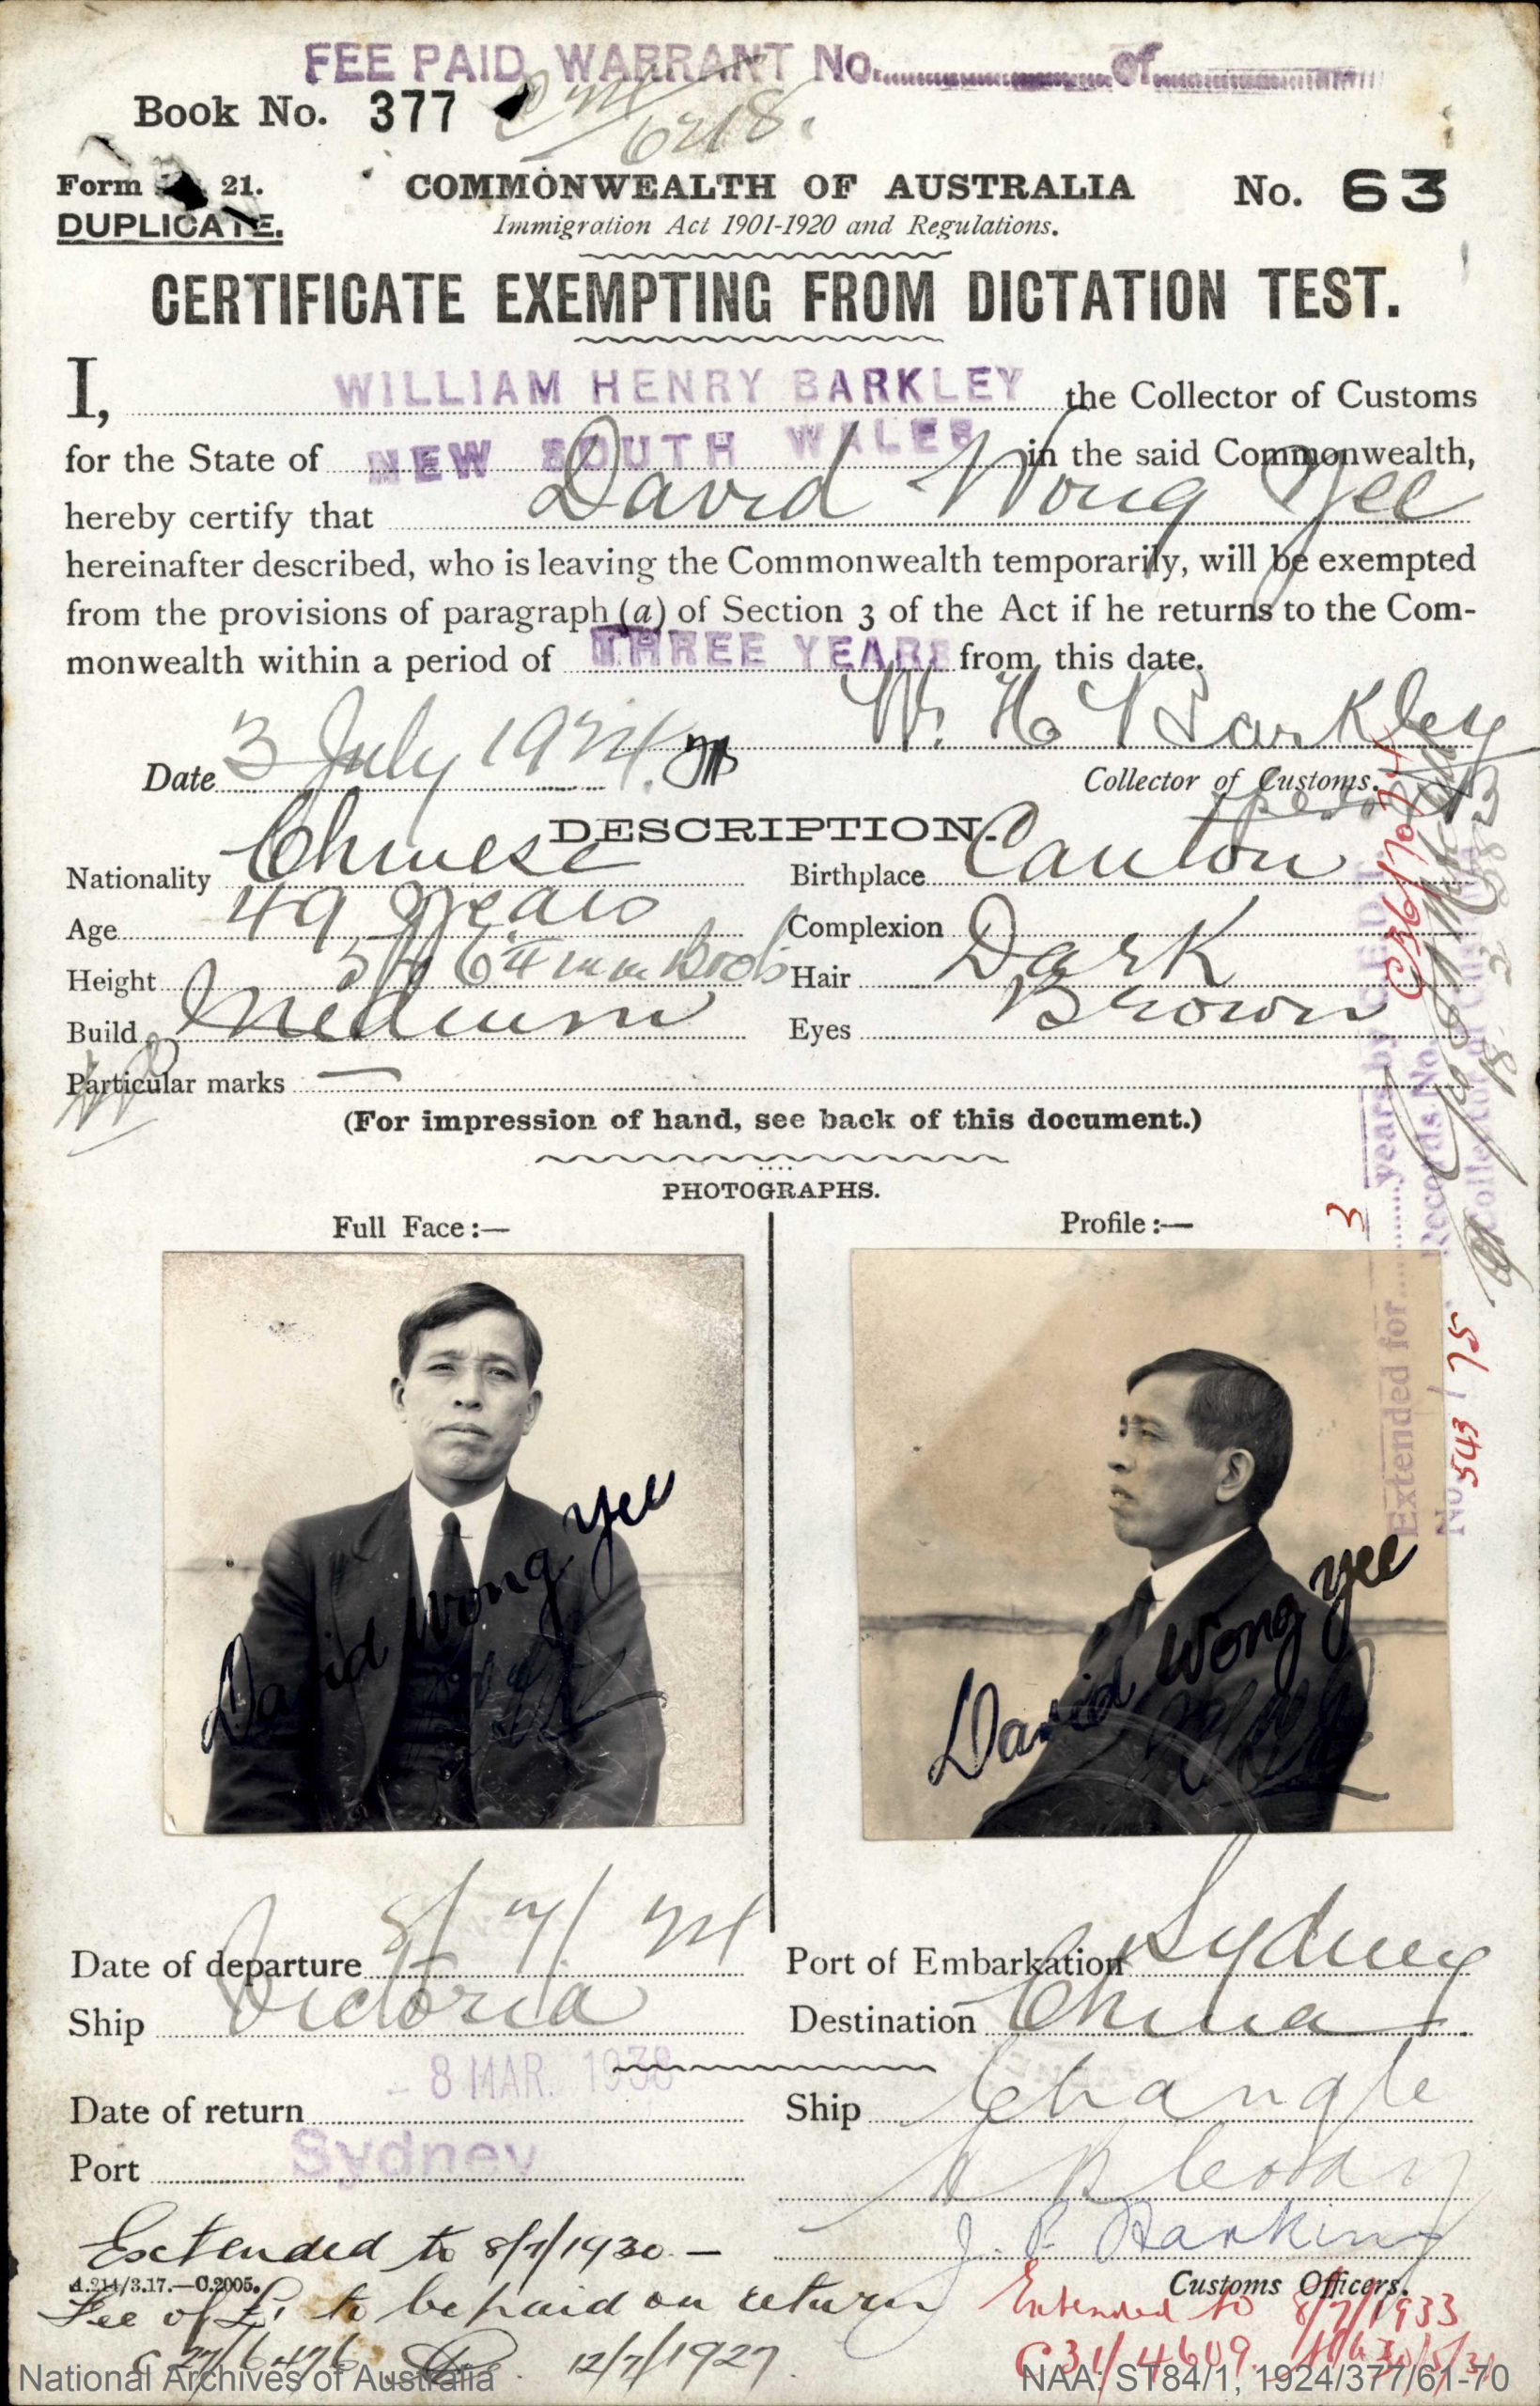 FEE PAID, WARRANT No. of
Book No. 377
Form 21.
DUPLICATE.
COMMONWEALTH OF AUSTRALIA No. 63
Immigration Act 1901-1920 and Regulations.
CERTIFICATE EXEMPTING FROM DICTATION TEST.
I, WILLIAM HENRY BARKLEY the Collector of Customs
for the State of NEW SOUTH WALES in the said Commonwealth,
hereby certify that David Wong Yee
hereinafter described, who is leaving the Commonwealth temporarily, will be exempted
from the provisions of paragraph (a) of Section 3 of the Act if he returns to the Com-
monwealth within a period of THREE YEARS from this date.
W. H. Barkley
Date 3 July 1924. Collector of Customs.
DESCRIPTION.
Nationality Chinese Birthplace Canton
Age 49 years Complexion Dark
Height 5ft 6¼ in in Boots Hair
Build Medium Eyes Brown
Particular marks —
(For impression of hand, see back of this document.)
PHOTOGRAPHS.
Full Face:— Profile:—
David Wong Yee
David Wong Yee
Extended for 3 years by C.E.D.T.
No. 543/75
Records No. C36/7074
Collector of Customs
Date of departure 8/7/24 Port of Embarkation Sydney
Ship Victoria Destination China
Date of return - 8 MAR. 1938 Ship Changte
Port Sydney
J. P. Harkins
Customs Officers.
Extended to 8/7/1930 —
A.214/3.17.—C.2005.
Fee of £1 to be paid on return
C27/6476 12/7/1927.
Extended to 8/7/1933
C31/4609.
National Archives of Australia
NAA: ST84/1, 1924/377/61-70